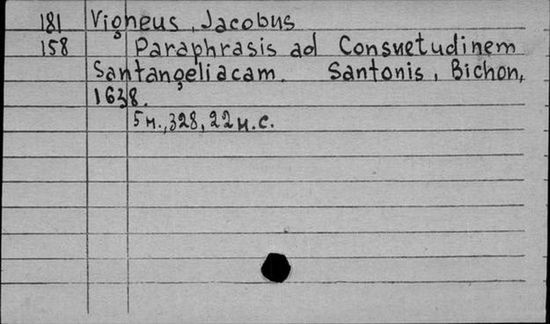 181 Vigneus, Jacobus
158 Paraphrasis ad Consuetudinem
Santangeliacam. Santonis, Bichon,
1638.
5 н., 328, 22 н. с.